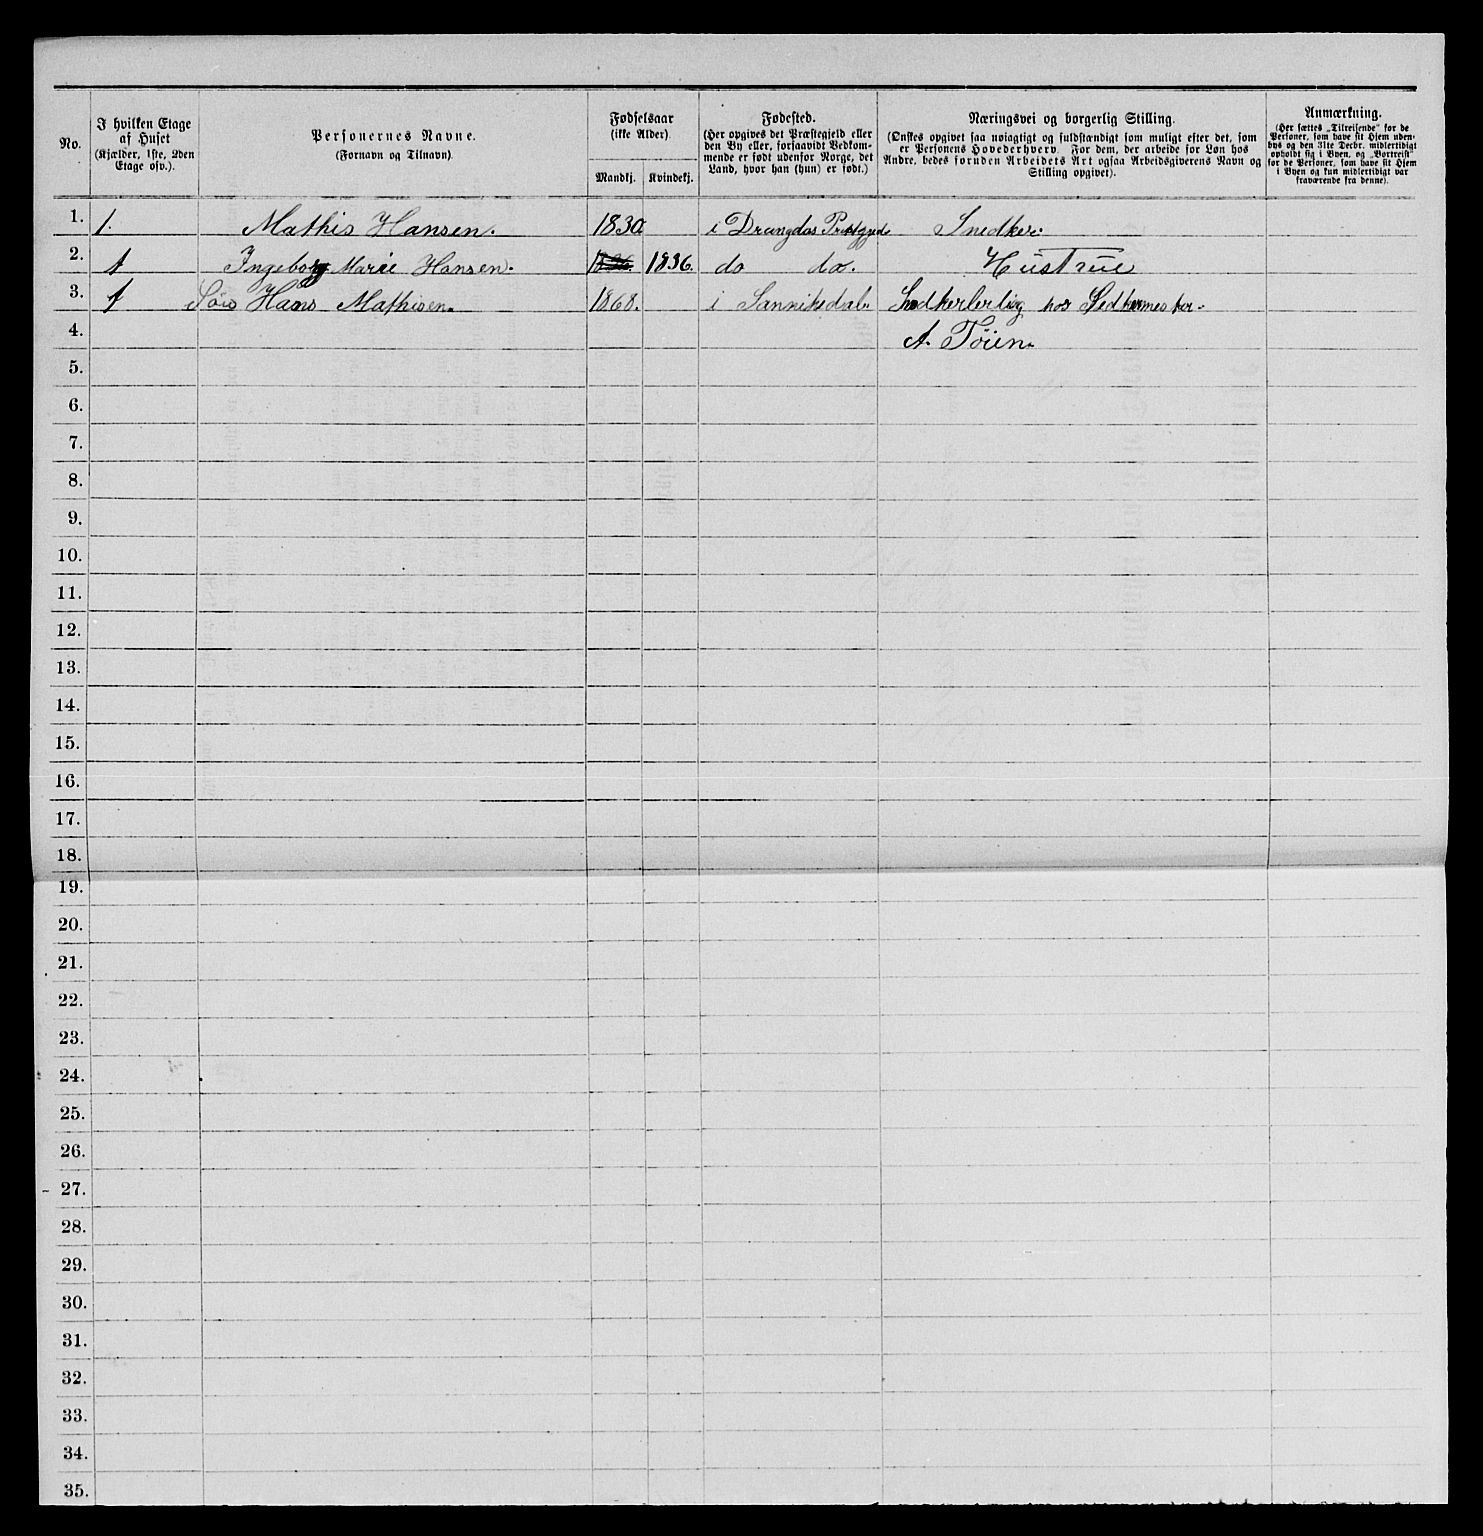 No.
I hvilken Etage
af Huset
(Kjælder, 1ste, 2den
Etage osv.).
Personernes Navne.
(Fornavn og Tilnavn)
Fødselsaar
(ikke Alder)
Mandkj.
Kvindekj.
Fødested.
(Her opgives det Præstegjeld eller
den By eller, forsaavidt Vedkom-
mende er født udenfor Norge, det
Land, hvor han (hun) er født.)
Næringsvei og borgerlig Stilling.
(Ønskes opgivet saa nøiagtigt og fuldstændigt som muligt efter det, som
er Personens Hovederhverv. For dem, der arbeide for Løn hos
Andre, bedes foruden Arbeidets Art ogsaa Arbeidsgiverens Navn og
Stilling opgivet).
Anmærkning.
(Her sættes „Tilreisende“ for de
Personer, som have sit Hjem uden-
bys og den 31te Decbr. midlertidigt
opholdt sig i Byen, og „Bortreist“
for de Personer, som have sit Hjem
i Byen og kun midlertidigt var
fraværende fra denne).
1. 1. Mathis Hansen. 1830 i Drangdas Snedker.
2. 1 Ingeborg Marie Hansen. 1836. do do. Hustrue
3. 1 Søn Hans Mathisen. 1868. i Sannikedal. hos
4. A. Töien.
5.
6.
7.
8.
9.
10.
11.
12.
13.
14.
15.
16.
17.
18.
19.
20.
21.
22.
23.
24.
25.
26.
27.
28.
29.
30.
31.
32.
33.
34.
35.